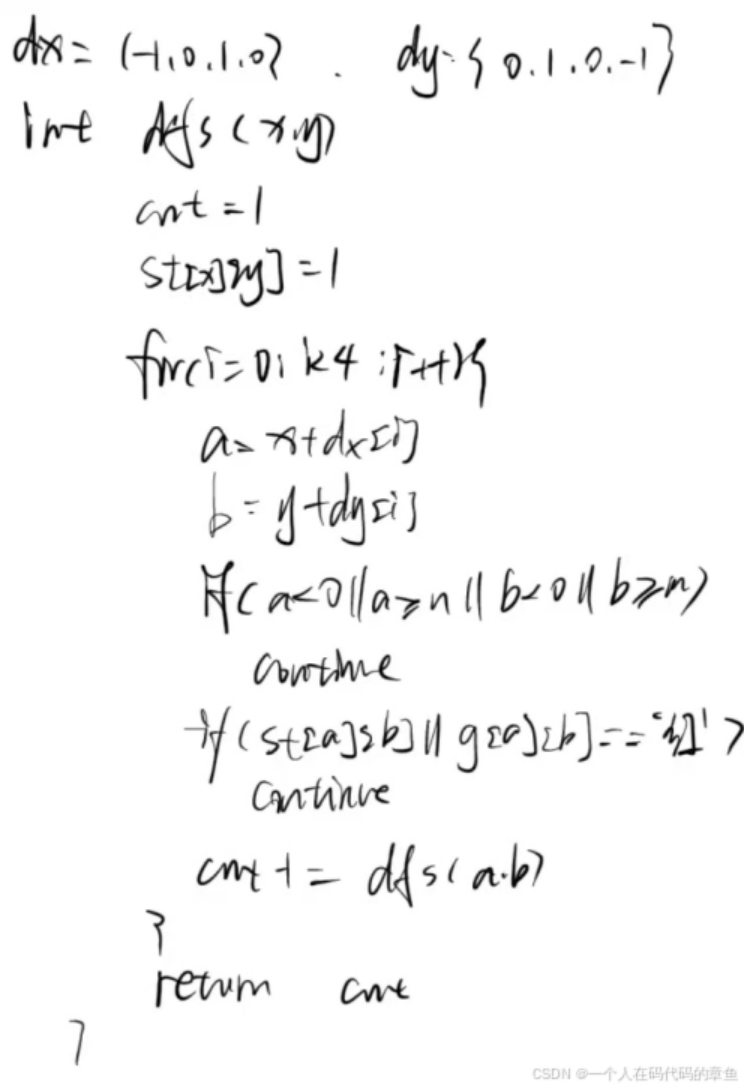 dx = {-1,0,1,0} . dy = { 0,1,0,-1}
int dfs(x,y)
cnt = 1
st[x][y] = 1
for(i=0; i<4; i++){
a = x+dx[i]
b = y+dy[i]
if( a<0 || a≥n || b<0 || b≥m)
continue
if(st[a][b] || g[a][b] == '红')
continue
cnt += dfs(a,b)
}
return cnt
}
CSDN @一个人在码代码的章鱼